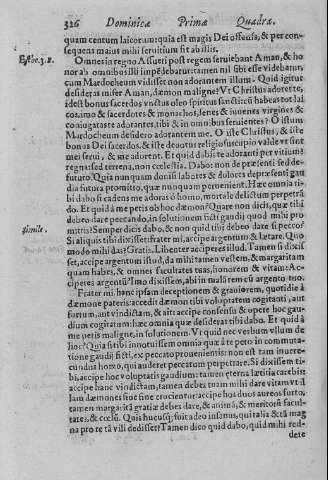 326 Dominicæ Primæ Quadra.
quam centum laicorum: quia est magis Dei offensa, & per con-
sequens maius mihi seruitium sit ab illis.
Esthe.3.8.
Omnes in regno Assueri post regem seruiebant Aman, & ho
norab omnibus illi impedebatur: tamen nil sibi esse videbatur,
cum Mardocheum vidisset non adorantem illum. Quid igitur
desideras miser Aman, dæmon maligne? Vt Christus adoret te,
idest bonus sacerdos vnctus oleo spiritus sancti: cũ habeas tot lai
cos, imo & sacerdotes & monachos, senes & iuuenes virgines &
coniugatas te adorantes, tibi & in omnibus seruientes? O istum
Mardocheum desidero adorantem me. O iste Christus, & iste
bonus Dei sacerdos, & iste deuotus religiosus cupio valde vt sint
mei serui, & me adorent. Et quid dabis te adoranti per vitium?
regna sed terrena, non cœlestia. Dabo non de præsenti sed de
futuro. Quia nunquam dormis labores & dolores de præsenti gau
dia futura promittis, quæ nunquam perueniunt. Hæc omnia ti-
bi dabo si cadens me adoras ô homo, mortale delictum perpetrã
do. Et quid à me petis ob hoc dæmon? Quare non dicis, quæ tibi
debeo dare peccando, in solutionem ficti gaudij quod mihi pro
Simile.
mittis? Semper dicis dabo, & non quid tibi debeo dare si pecco?
Si aliquis tibi dixisset frater mi, accipe argentum & lætare. Quo
modo mihi das? Gratis. Libenter acciperes illud. Tamen si dixis
set, accipe argentum istud, da mihi tamen vestem, & margaritam
quam habes, & omnes facultates tuas, honorem & vitam: Ac-
ciperes argentũ? Imo dixissem, abi in malã rem cũ argento tuo.
Frater mi, hanc ipsam deceptionem & grauiorem, quotidie à
dæmone pateris: accedit dæmon tibi voluptatem cogitanti, aut
furtum, aut vindictam, & ait: accipe consensũ & opere hoc gau-
dium cogitatum: hæc omnia quæ desideras tibi dabo. Et quid à
me petis maligne, in solutionem. Vt quid nec verbum vllum de
hoc? Quia si tibi innotuissem omnia quæ à te peto in commuta-
tione gaudij ficti, ex peccato prouenientis: non est tam incre-
cundus homo, qui auderet peccatum perpetrare. Si dixissem ti-
bi, accipe hoc voluptatis gaudium: tamen æterna lætitia carebis:
accipe hanc vindictam, tamen debes tuam mihi dare vitam vt il
lam dæmones sine fine crucientur: accipe hos duos aureos furto,
tamen margaritã gratiæ debes dare, & animã, & meritorũ facul-
tates, & cœlũ. Quis hucusq; fuit adeo insanus, qui talia & tã mag
na pro re tã vili dedisset? Tamen dico quid dabo, quid mihi red-
dete